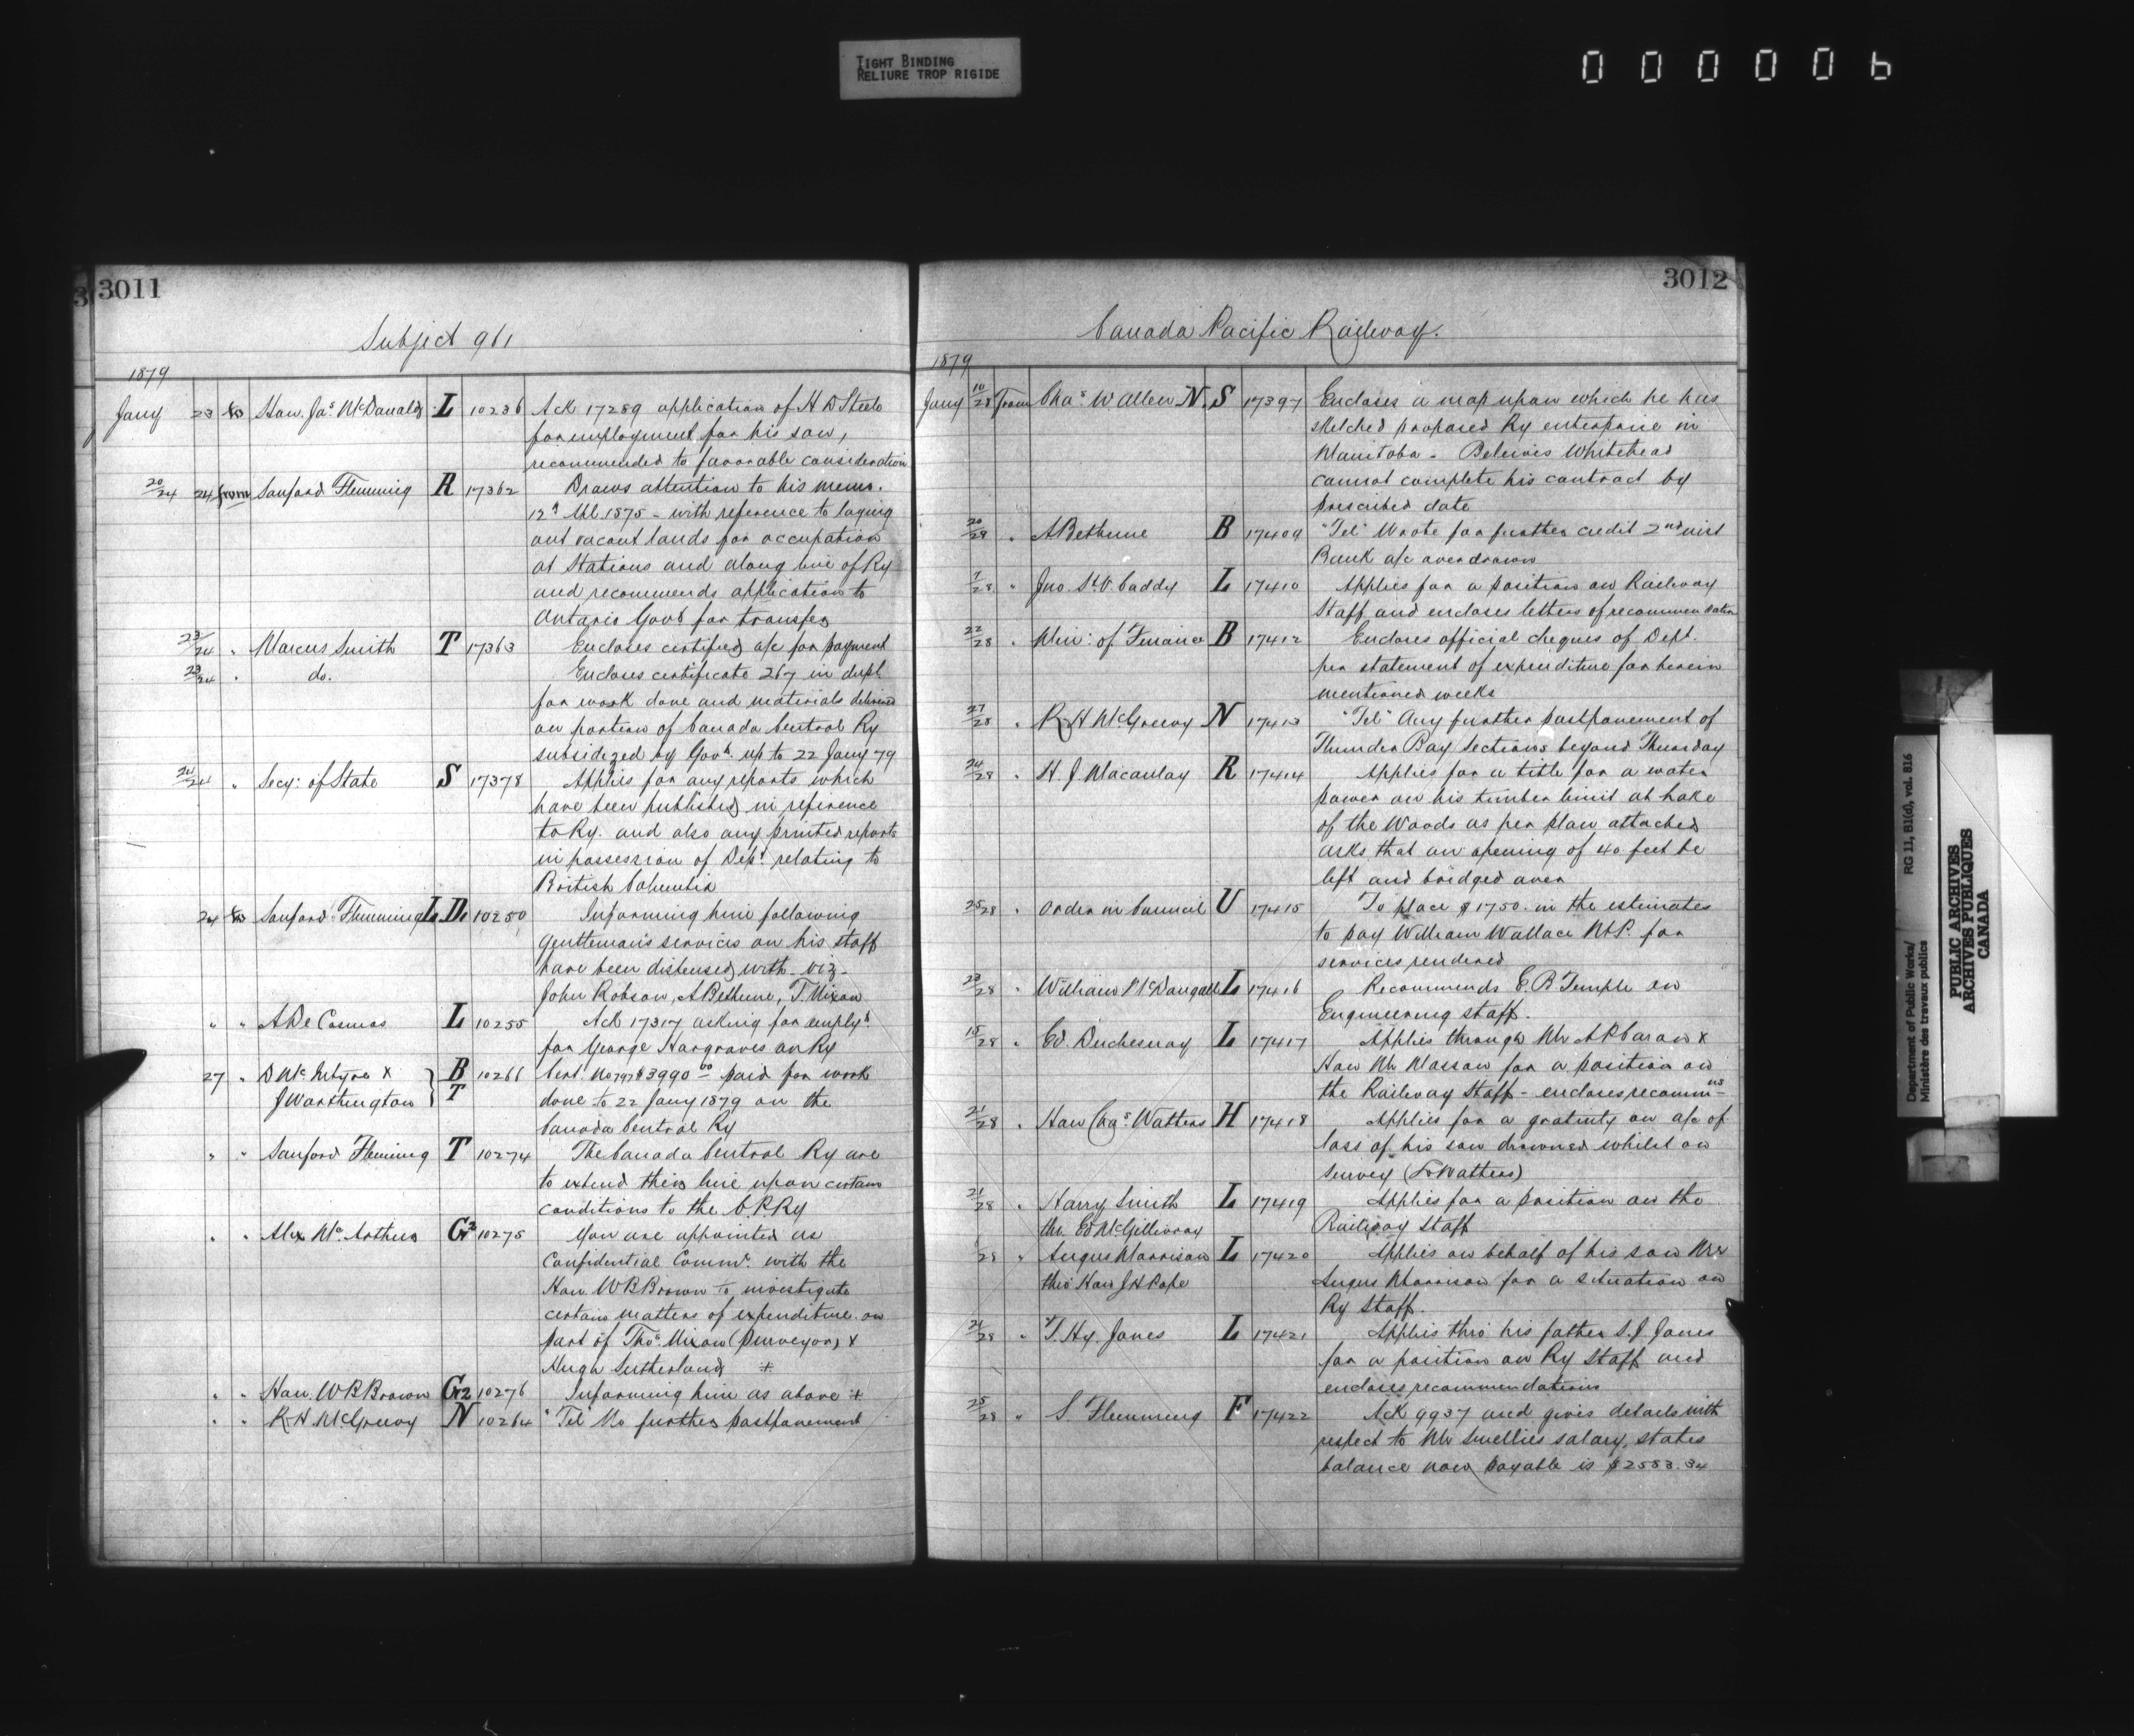 TIGHT BINDING
RELIURE TROP RIGIDE
000006
3011
Subject 961
1879
Jany 23 to Hon. Jas. McDonald L 10236 Ack 17289 application of H D Steele
for employment for his son,
recommended to favorable consideration
20/24 24 from Sanford Fleming R 17362 Draws attention to his memo.
1875 - with reference to laying
out vacant lands for occupation
at Stations and along line of Ry
and recommends application to
Ontario Govt for transfer
23/24 " Marcus Smith T 17363 Encloses certified a/c for payment
23/24 " do. Encloses certificate 267 in dupl.
for work done and materials delivered
on portion of Canada Central Ry
subsidezed by Govt. up to 22 Jany 79
24/24 " Secy: of State S 17378 Applies for any reports which
have been published in reference
to Ry. and also any printed reports
in possession of Dept. relating to
British Columbia
24 to Sanford Flemming L D. 10250 Informing him following
gentleman's services on his staff
have been dispensed with - viz -
John Robson, A Bethune, T. Nixon
" " A De Cosmos L 10255 Ack 17317 asking for emplyt.
for George Hargraves on Ry
27 " D McIntyre & B 10266 Cert. No 797 $3990 00 paid for work
J Worthington T done to 22 Jany 1879 on the
Canada Central Ry
" " Sanford Fleming T 10274 The Canada Central Ry are
to extend their line upon certain
conditions to the C.P.Ry
" " Alex Mc.Arthur G2 10275 You are appointed as
Confidential Commr. with the
Hon. W B Brown to investigate
certain matters of expenditure on
part of Thos. Nixon (Purveyor) &
Hugh Sutherland #
" " Hon. W B Brown G2 10276 Informing him as above #
" " R H McGreevy N 10264 "Tel" No further postponement
3012
Canada Pacific Railway.
1879
Jany 10/28 From Chas. W Allen N. S 17397 Encloses a map upon which he has
sketched proposed Ry enterprise in
Manitoba - Beleives Whitehead
cannot complete his contract by
prescribed date
20/28 " A Bethune B 17409 "Tel" Wrote for further credit 2nd inst
Bank a/c overdrawn
7/28 " Jno. St. V. Caddy L 17410 Applies for a position on Railway
Staff and encloses letters of recommendation
22/28 " Min: of Finance B 17412 Encloses official cheques of Dept.
per statement of expenditure for herein
mentioned weeks
27/28 " R H McGreevy N 17413 "Tel" Any further postponement of
Thunder Bay Sections beyond Thursday
24/28 " H. J. Macaulay R 17414 Applies for a title for a water
power on his timber limit at Lake
of the Woods as per plan attached
asks that an opening of 40 feet be
left and bridged over
25/28 " Order in Council U 17415 To place $1750. in the estimates
to pay William Wallace M.P. for
services rendered
23/28 " William McDougall L 17416 Recommends E. B Temple on
Engineering staff.
15/28 " Ed. Duchesnay L 17417 Applies through Mr A P Caron &
Hon Mr Masson for a position on
the Railway Staff - encloses recommns
21/28 " Hon Chas. Watters H 17418 Applies for a gratuity on a/c of
loss of his son drowned whilst on
Survey (Watters)
21/28 " Harry Smith L 17419 Applies for a position on the
thr. Ed McGillivray Railway Staff
28 " Angus Morrison L 17420 Applies on behalf of his son Mr
thro Hon J H Pope Angus Morrison for a situation on
Ry Staff.
21/28 " T. Hy. Jones L 17421 Applies thro' his father S. J. Jones
for a position on Ry Staff and
encloses recommendations
25/28 " S Flemming F 17422 Ack 9937 and gives details with
respect to Mr Smellies salary, states
balance now payable is $2583.34
Department of Public Works/ RG 11, B1(d), vol. 816
Ministère des travaux publics
PUBLIC ARCHIVES
ARCHIVES PUBLIQUES
CANADA